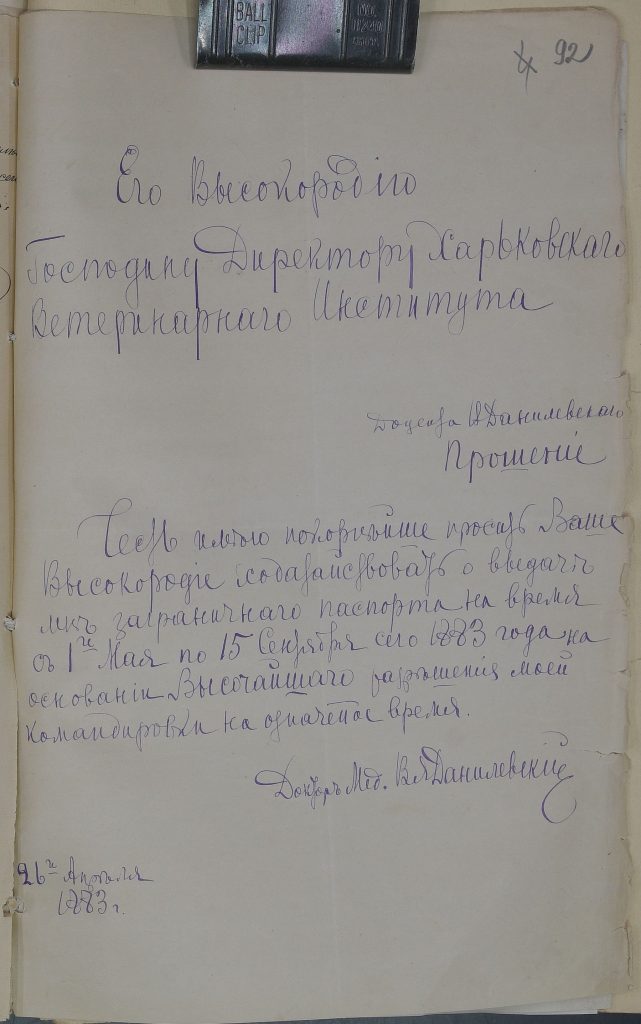 BALL
CLIP
92
Его Высокородію
Господину Директору Харьковскаго
Ветеринарнаго Института
Доцента В Данилевскаго
Прошеніе
Честь имѣю покорнѣйше просить Ваше
Высокородіе исходатайствовать о выдачѣ
мнѣ заграничнаго паспорта на время
съ 1го Мая по 15 Сентября сего 1883 года на
основаніи Высочайшаго разрѣшенія моей
командировки на означеное время.
Докторъ Мед. В Данилевскій
26го Апрѣля
1883 г.